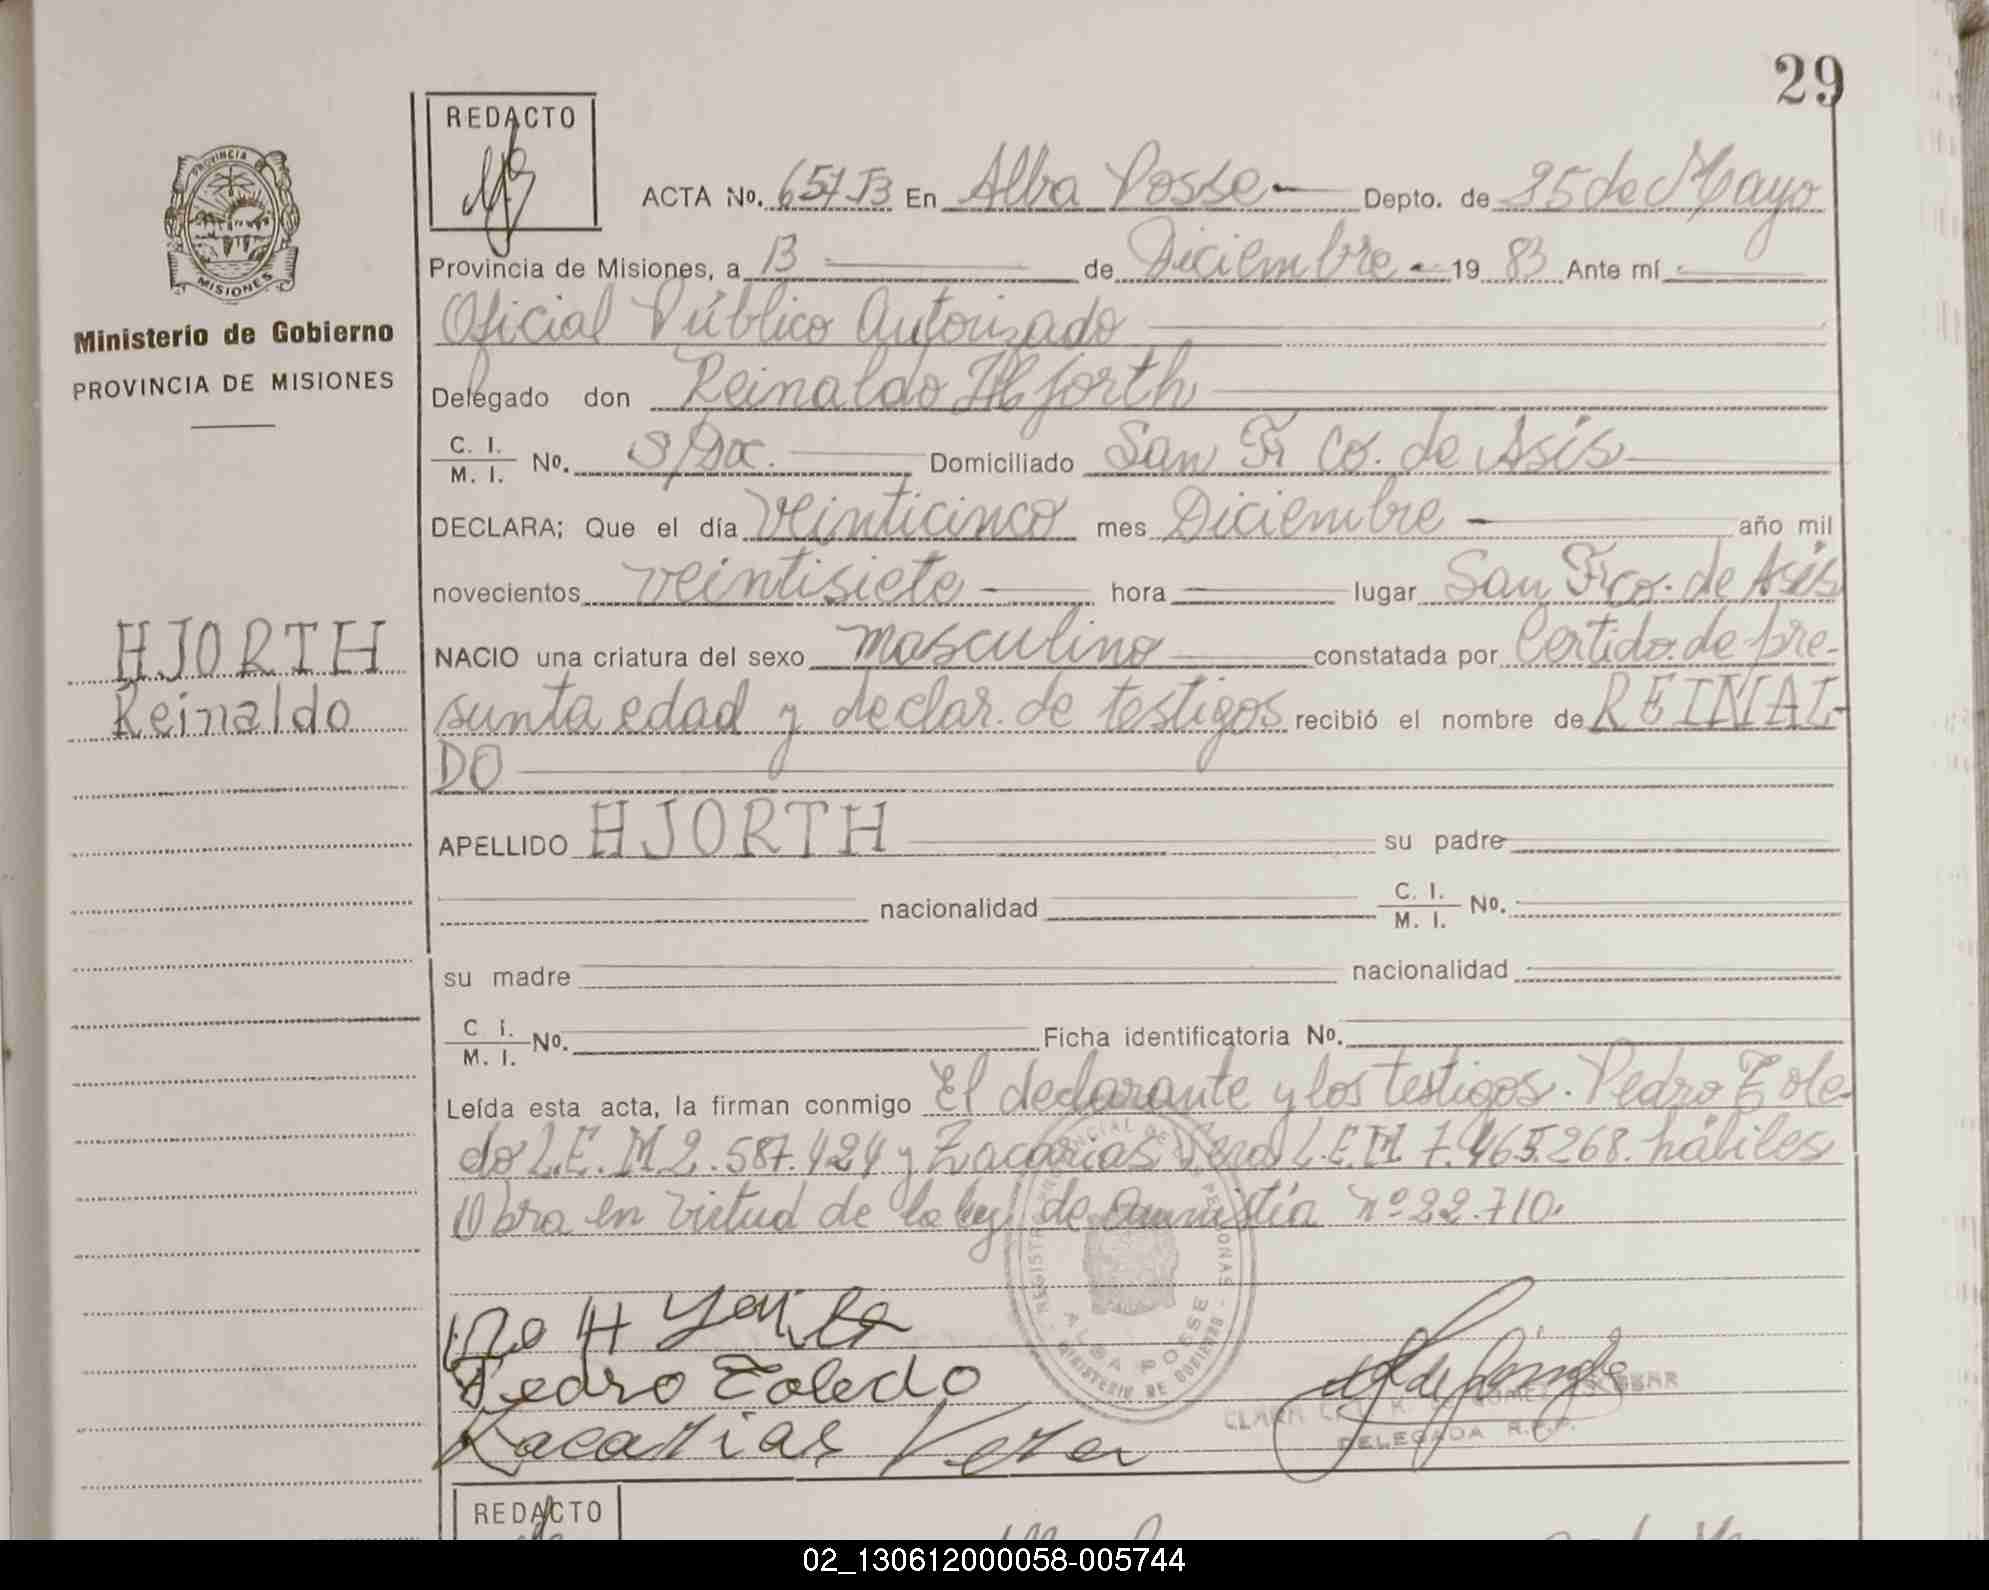 29
REDACTO
PROVINCIA
MISIONES
Ministerio de Gobierno
PROVINCIA DE MISIONES
ACTA No. En Alba Posse Depto. de 25 de Mayo
Provincia de Misiones, a 13 de Diciembre 19 83 Ante mí
Oficial Público Autorizado
Delegado don Reinaldo Hjorth
C. I.
M. I. No. S/Doc. Domiciliado San Fr Co. de Asís
DECLARA; Que el día veinticinco mes Diciembre año mil
novecientos veintisiete hora lugar San Frco. de Asís
HJORTH
Reinaldo
NACIO una criatura del sexo masculino constatada por Certido. de pre-
sunta edad y declar. de testigos recibió el nombre de REINAL-
DO
APELLIDO HJORTH su padre
nacionalidad C. I.
M. I. No.
su madre nacionalidad
C i.
M. I. No. Ficha identificatoria No.
Leída esta acta, la firman conmigo El declarante y los testigos. Pedro Tole-
do L.E.M 2.587.424 y Zacarias Vera L.E.M 7.465.268. hábiles
Obra en virtud de la ley de Amnistía nº 22.710.
Pedro Toledo
Zacarias Vera
ALBA POSSE
MINISTERIO DE GOBIERNO
DELEGADA R.P.P.
REDACTO
02_130612000058-005744